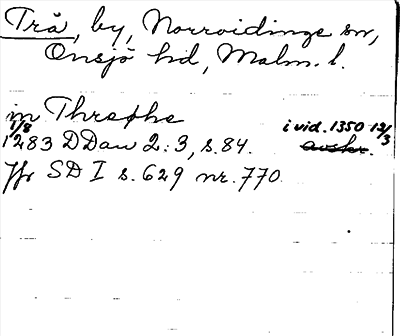 Trå, by, Norrvidinge sn,
Onsjö hd, Malm. l.
in Thrøphe
1/8 i vid. 1350 13/3
1283 DDan 2:3, s. 84. avskr.
Jfr SD I s. 629 nr. 770.